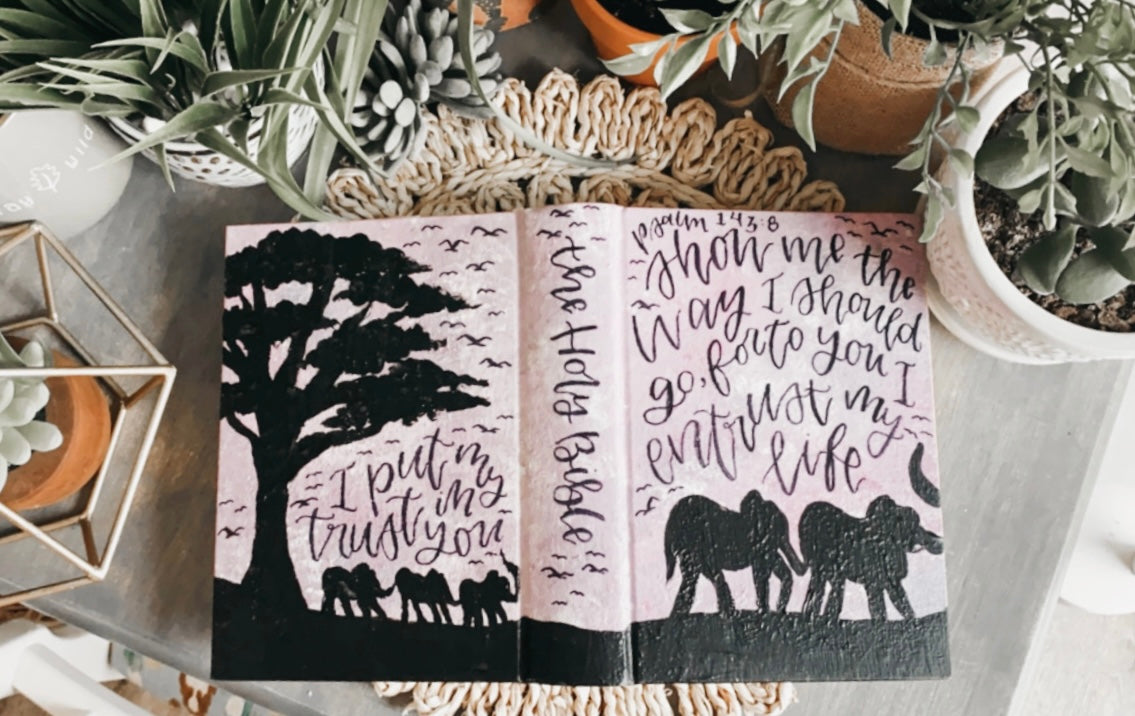 I put my
trust in
you
the Holy Bible
psalm 143:8
show me the
way I should
go, for to you I
entrust my
life
wild